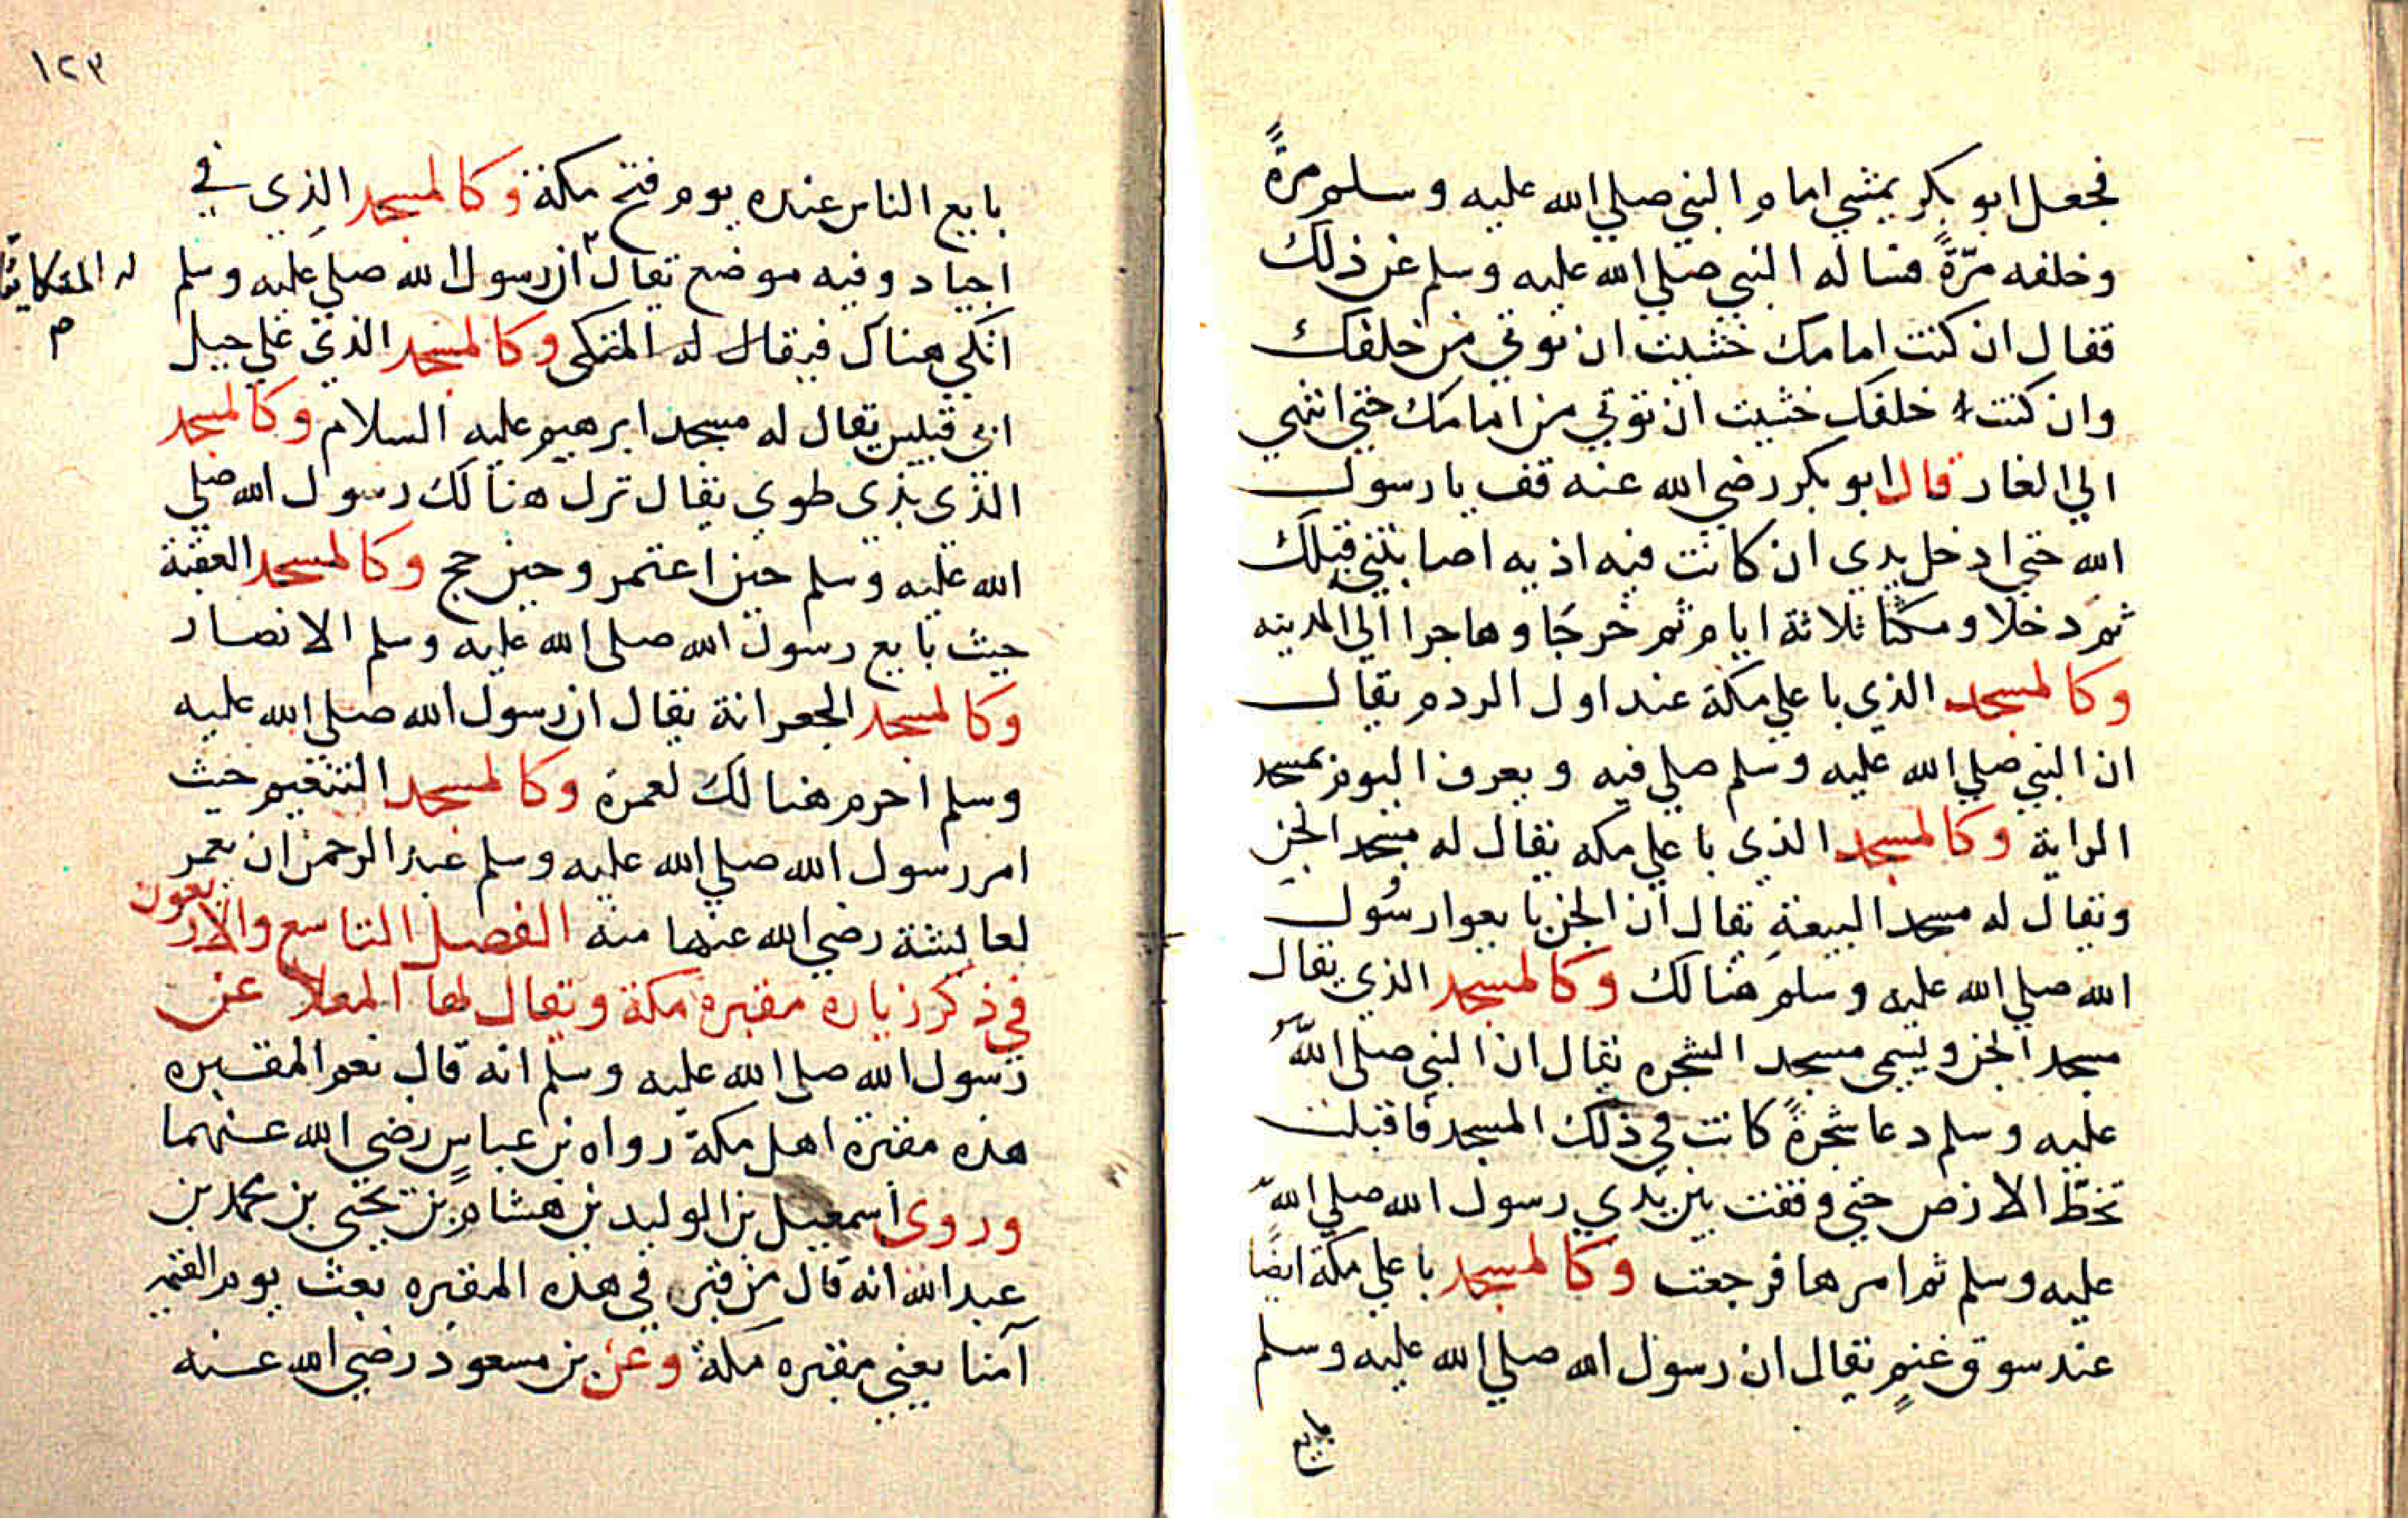 فجعل ابو بكر يمشي امام النبي صلي الله عليه وسلم مرةً
وخلفه مرّةً فساله النبي صلي الله عليه وسلم عن ذلك
فقال ان كنت امامك خشيت ان توتي من خلفك
وان كنت خلفك خشيت ان توتي من امامك حتي انتهي
الي الغار قال ابو بكر رضي الله عنه قف يا رسول
الله حتي ادخل يدي ان كانت فيه اذيه اصابتني قبلك
ثم دخلا ومكثا ثلاثة ايام ثم خرجا وهاجرا الي المدينه
وكالمسجد الذي باعلي مكة عند اول الردم يقال
ان النبي صلي الله عليه وسلم صلي فيه ويعرف اليوم بمسجد
الراية وكالمسجد الذي باعلي مكه يقال له مسجد الجن
ويقال له مسجد البيعة يقال ان الجن بايعوا رسول
الله صلي الله عليه وسلم هنالك وكالمسجد الذي يقال
مسجد الجن ويسمى مسجد الشجره يقال ان النبي صلي الله
عليه وسلم دعا شجرةً كانت في ذلك المسجد فاقبلت
تخطّ الارض حتي وقفت بين يدي رسول الله صلي الله
عليه وسلم ثم امرها فرجعت وكالمسجد باعلي مكة ايضًا
عند سوق غنمٍ يقال ان رسول الله صلي الله عليه وسلم
بايع
١٢٣
بايع الناس عنده يوم فتح مكة وكالمسجد الذي في
اجياد وفيه موضع يقال ان رسول الله صلي عليه وسلم
له المتكا
م
اتكي هناك فيقال له المتكى وكالمسجد الذي علي جبل
ابي قبيس يقال له مسجد ابرهيم عليه السلام وكالمسجد
الذي بذي طوي يقال نزل هنالك رسول الله صلي
الله عليه وسلم حين اعتمر وحين حج وكالمسجد العقبة
حيث بايع رسول الله صلي الله عليه وسلم الانصار
وكالمسجد الجعرانة يقال ان رسول الله صلي الله عليه
وسلم احرم هنالك لعمرة وكالمسجد التنعيم حيث
امر رسول الله صلي الله عليه وسلم عبد الرحمن ان يعمر
لعايشة رضي الله عنها منه الفصل التاسع والاربعون
في ذكر زياره مقبره مكة ويقال لها المعلا عن
رسول الله صلي الله عليه وسلم انه قال نعم المقبره
هذه مقبرة اهل مكة رواه بن عباس رضي الله عنهما
وروى اسمعيل بن الوليد بن هشام بن يحيى بن محمد بن
عبد الله انه قال من قبر في هذه المقبره بعث يوم القيمه
آمنا يعني مقبره مكة وعن بن مسعود رضي الله عنه